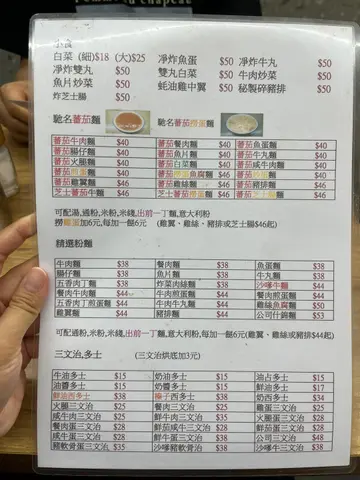 小食
白菜 (細)$18 (大)$25 淨炸魚蛋 $50 淨炸牛丸 $50
淨炸雙丸 $50 雙丸白菜 $50 牛肉炒菜 $50
魚片炒菜 $50 蚝油雞中翼 $50 秘製碎豬排 $50
炸芝士腸 $50
馳名蕃茄麵 馳名蕃茄撈蛋麵
蕃茄牛肉麵 $40 蕃茄餐肉麵 $40 蕃茄魚蛋麵 $40
蕃茄腸仔麵 $40 蕃茄魚片麵 $40 蕃茄牛丸麵 $40
蕃茄火腿麵 $40 蕃茄白菜麵 $40 蕃茄咸牛肉麵 $40
蕃茄煎蛋麵 $40 蕃茄撈蛋魚腐麵 $46 蕃茄炒蛋麵 $40
蕃茄雞翼麵 $46 蕃茄雞絲麵 $46 蕃茄豬排麵 $46
芝士牛蕃麵 $46 芝士蕃茄撈蛋麵 $46 蕃茄芝士腸麵 $46
可配湯,通粉,米粉,米綫,出前一丁麵,意大利粉
撈雞蛋加6元,每加一餸6元 (雞翼、雞絲麵、豬排或芝士腸$46起)
精選粉麵
牛肉麵 $38 餐肉麵 $38 魚蛋麵 $38
腸仔麵 $38 魚片麵 $38 牛丸麵 $38
五香肉丁麵 $38 炸菜肉絲麵 $38 沙嗲牛麵 $38
餐肉牛肉麵 $44 牛肉煎蛋麵 $44 餐肉煎蛋麵 $44
五香肉丁煎蛋麵 $44 牛肉牛丸麵 $44 雞絲魚腐麵 $50
雞翼麵 $44 豬排麵 $44 公司什錦麵 $53
可配通粉,米粉,米綫,出前一丁麵,意大利粉,每加一餸6元(雞翼、雞絲或豬排$44起)
三文治,多士 (三文治烘底加3元)
牛油多士 $15 奶油多士 $15 油占多士 $15
油醬多士 $15 奶醬多士 $15 鮮油多士 $17
西多士 $38 西多士 $38 奶西多士 $34
火腿三文治 $25 餐肉三文治 $25 雞蛋三文治 $25
咸牛三文治 $28 鮮牛三文治 $28 火腿蛋三文治 $28
餐肉蛋三文治 $28 咸牛蛋三文治 $28 鮮肉蛋三文治 $28
咸牛蛋三文治 $28 鮮牛蛋三文治 $28 公司三文治 $48
豬軟骨蛋三文治 $35 沙嗲豬軟骨三文治 $38